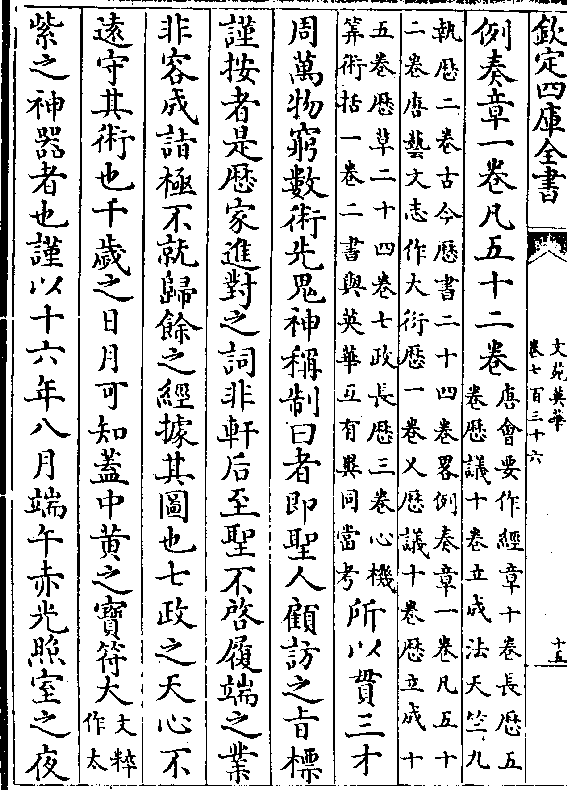 欽定四庫全書
文苑英華
卷七百三十六
十五
例奏章一卷凡五十二卷
唐會要作經章十卷長歴五
卷歴議十卷立成法天竺九
執歴二卷古今歴書二十四卷畧例奏章一卷凡五十
二卷唐藝文志作大衍歴一卷又歴議十卷歴立成十
五卷歴草二十四卷七政長歴三卷心機
筭術括一卷二書與英華互有異同當考
所以貫三才
周萬物窮數術先鬼神稱制曰者即聖人顧訪之旨標
謹按者是歴家進對之詞非軒后至聖不啓履端之業
非容成詣極不就歸餘之經據其圖也七政之天心不
遠守其術也千歲之日月可知蓋中黄之寶符大
文粹
作太
紫之神器者也謹以十六年八月端午赤光照室之夜